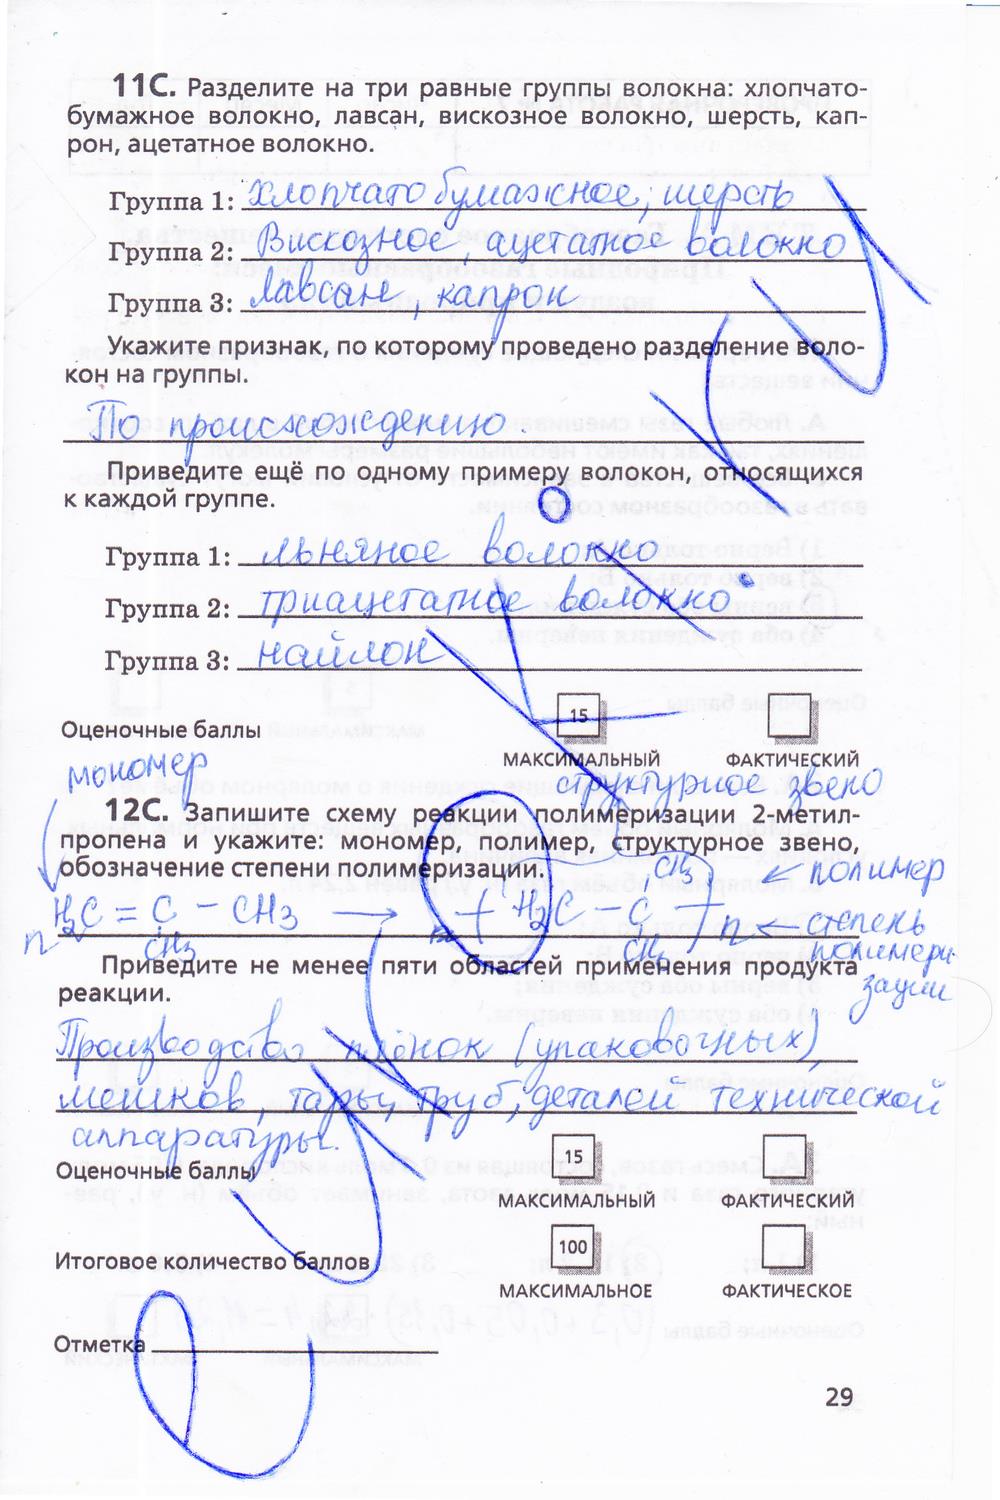 11С. Разделите на три равные группы волокна: хлопчато-
бумажное волокно, лавсан, вискозное волокно, шерсть, кап-
рон, ацетатное волокно.
Группа 1: хлопчатобумажное, шерсть
Группа 2: Вискозное, ацетатное волокно
Группа 3: Лавсан, капрон
Укажите признак, по которому проведено разделение воло-
кон на группы.
По происхождению.
Приведите ещё по одному примеру волокон, относящихся
к каждой группе.
Группа 1: льняное волокно
Группа 2: триацетатное волокно
Группа 3: найлон
Оценочные баллы
15
МАКСИМАЛЬНЫЙ ФАКТИЧЕСКИЙ
мономер
структурное звено
12С. Запишите схему реакции полимеризации 2-метил-
пропена и укажите: мономер, полимер, структурное звено,
обозначение степени полимеризации.
CH3 ← полимер
n H2C = C - CH3 → ( H2C - C )n ← степень
CH3 CH3 полимери
зации
Приведите не менее пяти областей применения продукта
реакции.
Производство плёнок (упаковочных),
мешков, тары, труб, деталей технической
аппаратуры.
15
Оценочные баллы
МАКСИМАЛЬНЫЙ ФАКТИЧЕСКИЙ
100
Итоговое количество баллов
МАКСИМАЛЬНОЕ ФАКТИЧЕСКОЕ
Отметка
29